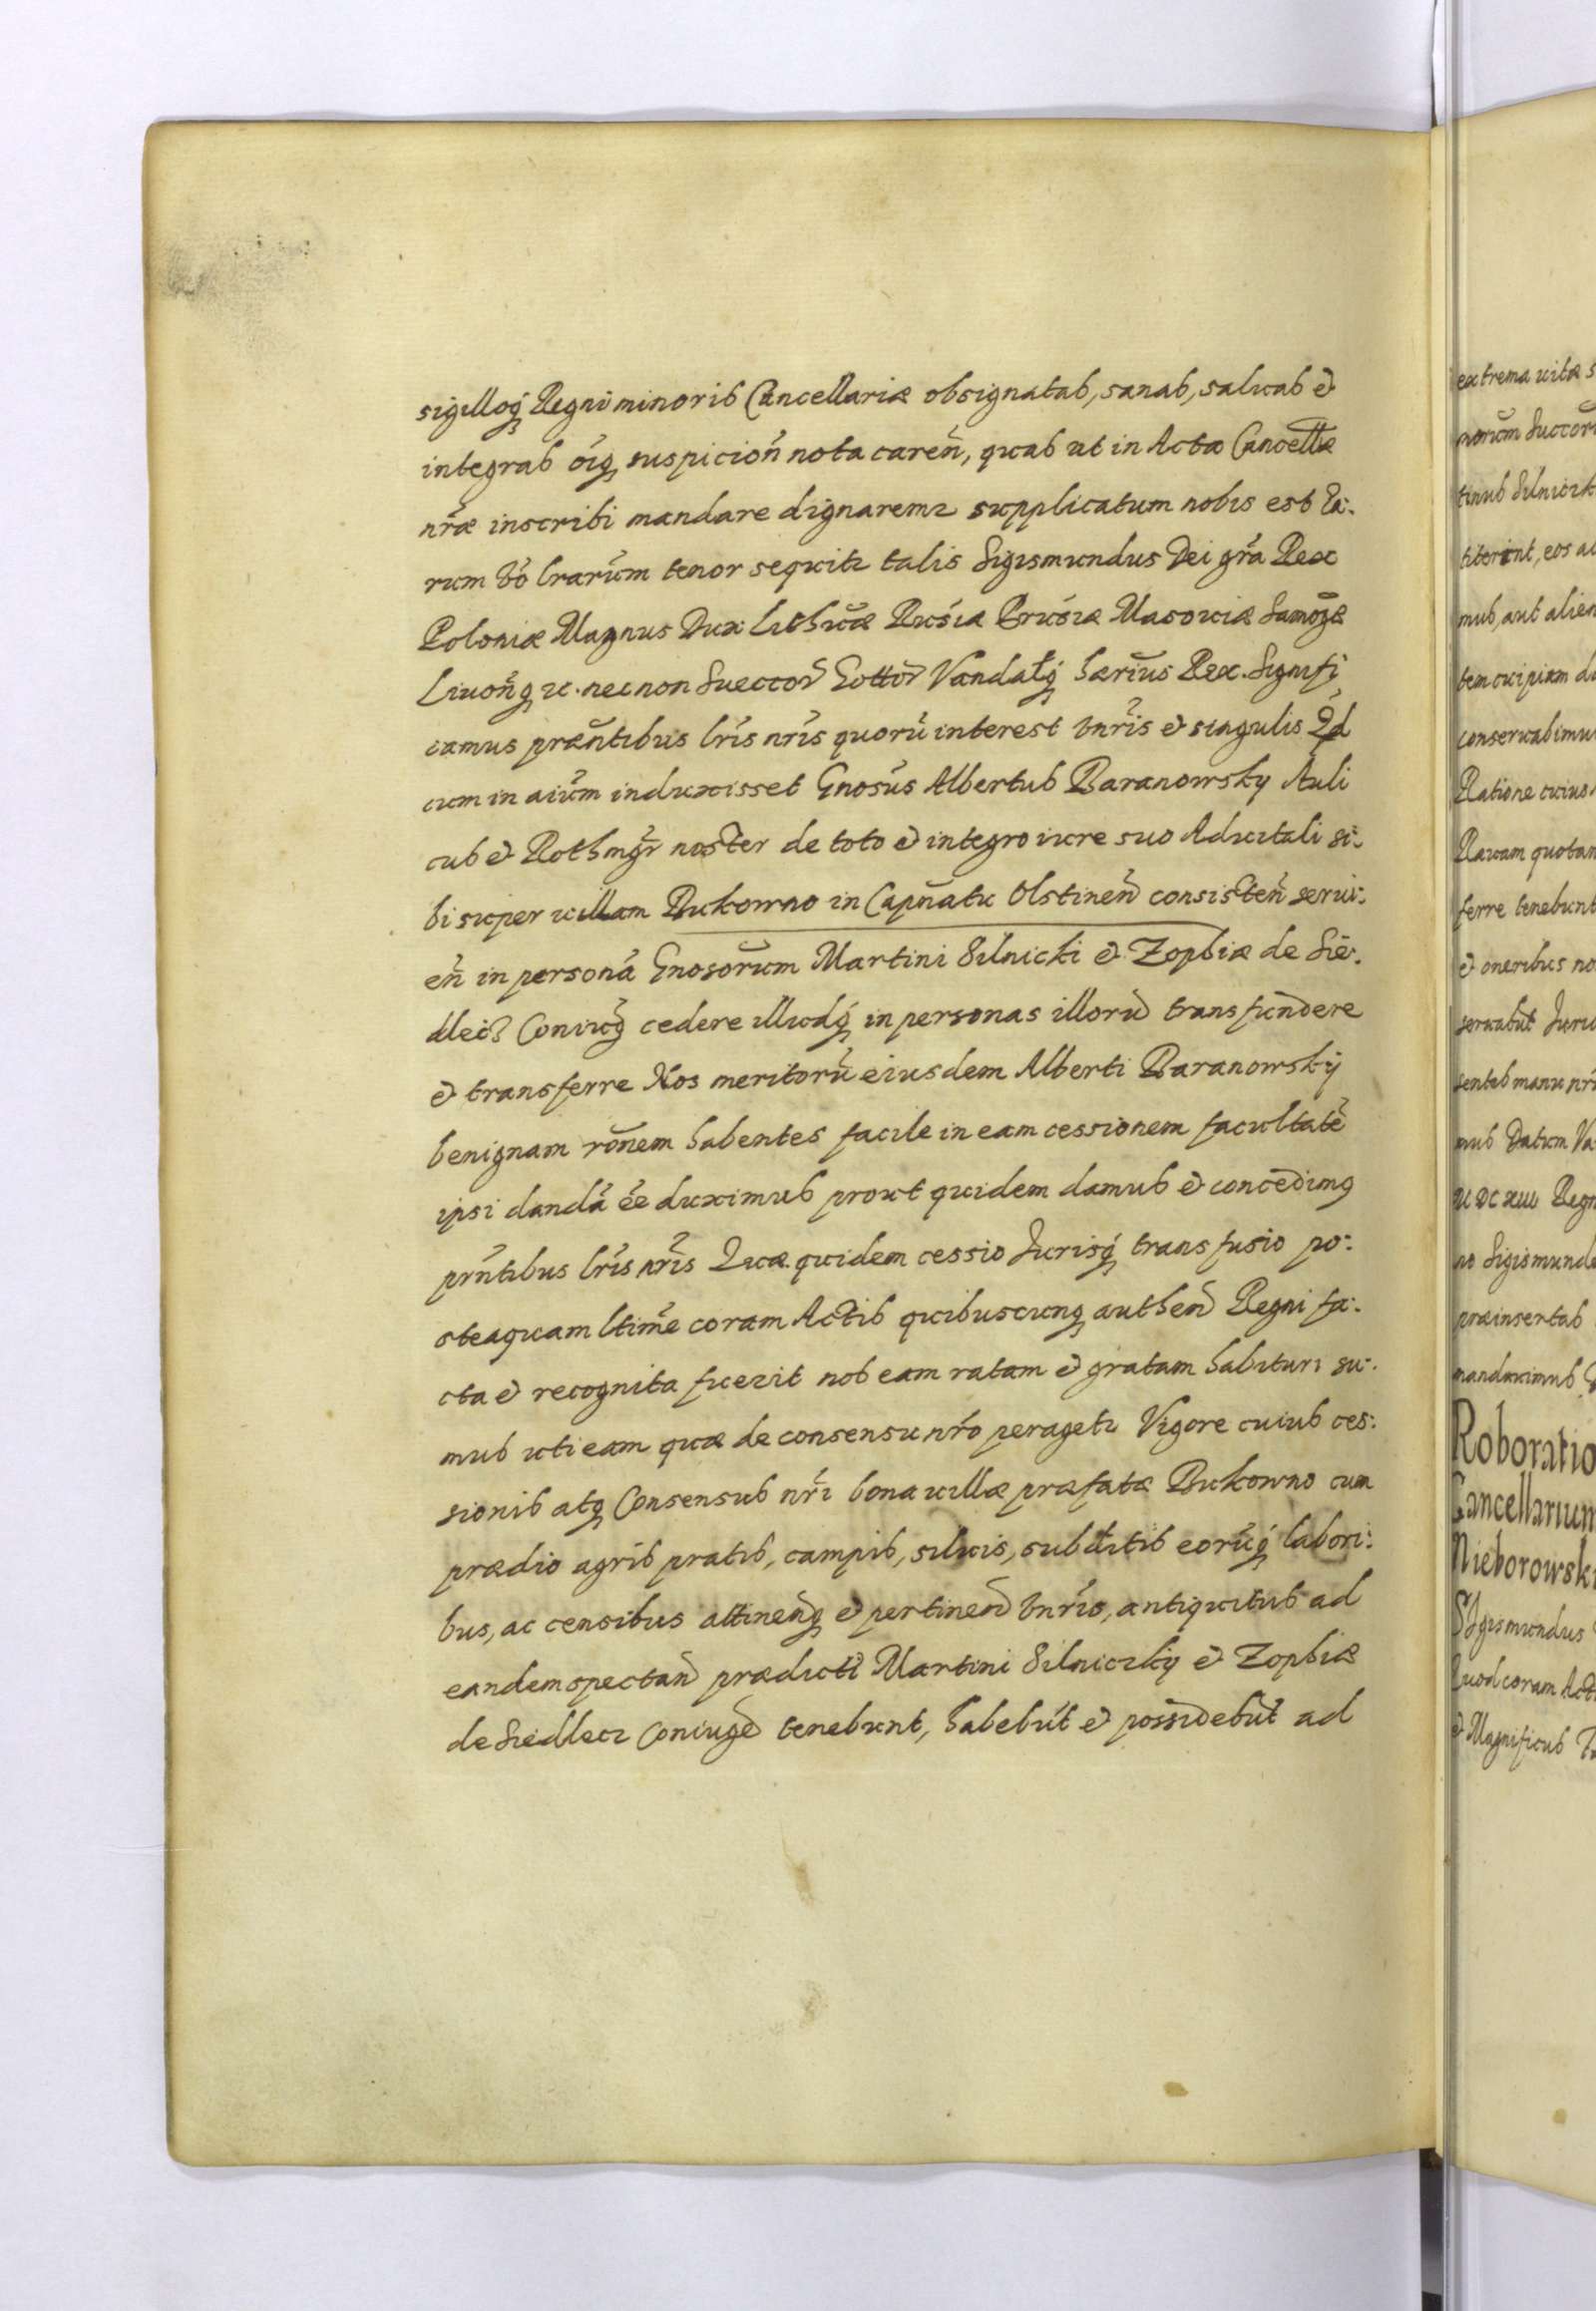 sigilloq́ꝫ Regni minoris Cancellariæ obsignatas, sanas, saluas et
integras oı̃q́ꝫ suspicion̄ nota caren̄, quas ut in Acta Cancellæ
nr̃æ inscribi mandare dignaremr supplicatum nobis est Ea:
rum v̄o lr̃arum tenor sequitr talis Sigismundus Dei gr̃a Rex
Poloniæ Magnus Dux Lithuæ Rusiæ Prusiæ Masouiæ Samog̃æ
Liuon̄q́ꝫ ꝛc. necnon Sueccor̄ Gottor̄ Vandalq́ꝫ hær̃ius Rex. Signifi
camus præn̄tibus lr̃is nr̃is quorū interest vnr̃is et singulis Qd
cum in aı̃um induxisset Gnosus Albertus Baranowsky Auli
cus et Rothmgr̃ noster de toto et integro iure suo Aduitali si:
bi super uillam Bukowno in Capn̄atu Olstinen̄ consisten̄ serui:
en̄ in personā Gnosorum Martini Silnicki et Zophiæ de Sie:
dlecz Coniug̃ cedere illudq́ꝫ in personas illorū transfundere
et transferre Nos meritorū eiusdem Alberti Baranowsky
benignam ron̄em habentes facile in eam cessionem facultatē
ipsi dandā ee̅ duximus prout quidem damus et concedimꝰ
prn̄tibus lr̃is nr̃is Quæ quidem cessio Jurisq́ꝫ transfusio po:
steaquam ltime̅ coram Actis quibuscunqꝫ authen̄ Regni fa:
cta et recognita fuerit nos eam ratam et gratam habituri su:
mus uti eam quæ de consensu nr̃o peragetr Vigore cuius ces:
sionis atqꝫ Consensus nr̃i bona uillæ præfatæ Bukowno cum
prædio agris pratis, campis, siluis, subditis eorūq́ꝫ labori:
bus, ac censibus attinen̄qꝫ et pertinen̄ vnr̃is, antiquitus ad
eandem spectan̄ prædicti Martini Silniczky et Zophiæ
de Siedlecz Coniuge̅ tenebunt, habebūt et possidebūt ad
extrema uitæ
norum Succor
tinus Silniczk
titerint, eos a
mus, aut alien
tem cuipiam d
conseruabimu
Ratione cuius
Rauam quotan
ferre tenebunt
et oneribus no
seruabūt Juri
sentes manu nr̃
mus Datum Va
M DC XIII Regn
no Sigismund
præinsertas
mandauimus
Roboratio
Cancellarium
Nieborowsk
SIgismundus
Quod coram Act
et Magnificus